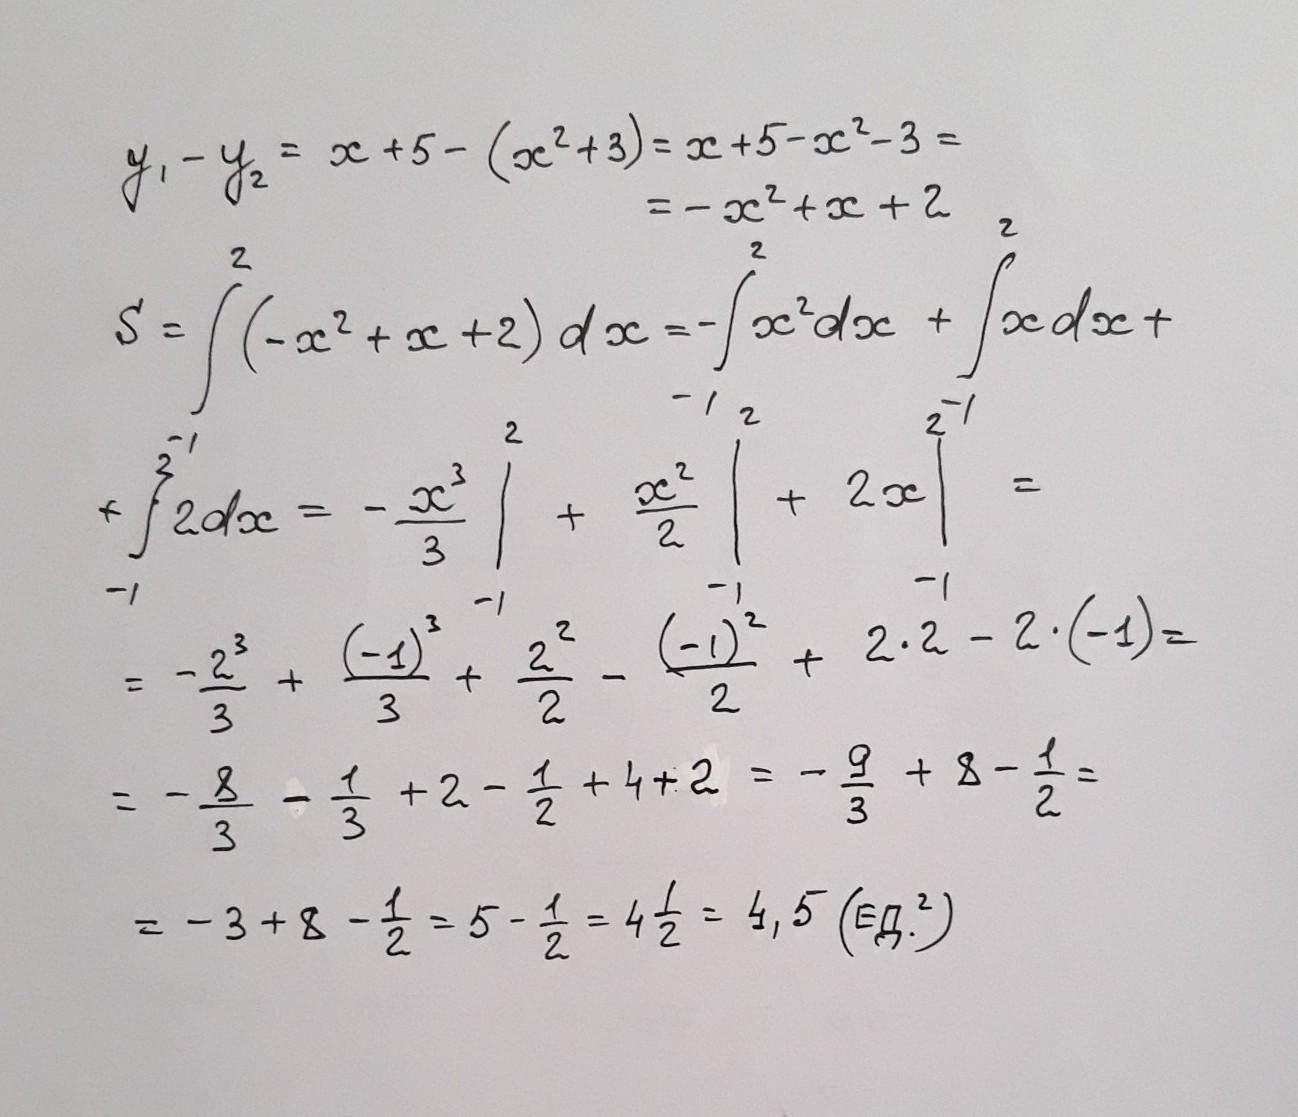 y₁ - y₂ = x + 5 - (x² + 3) = x + 5 - x² - 3 =
= - x² + x + 2
S = ∫₋₁² (-x² + x + 2) dx = - ∫₋₁² x² dx + ∫₋₁² x dx +
+ ∫₋₁² 2 dx = - x³/3 |₋₁² + x²/2 |₋₁² + 2x |₋₁² =
= - 2³/3 + (-1)³/3 + 2²/2 - (-1)²/2 + 2·2 - 2·(-1) =
= - 8/3 - 1/3 + 2 - 1/2 + 4 + 2 = - 9/3 + 8 - 1/2 =
= - 3 + 8 - 1/2 = 5 - 1/2 = 4 1/2 = 4,5 (ЕД.²)